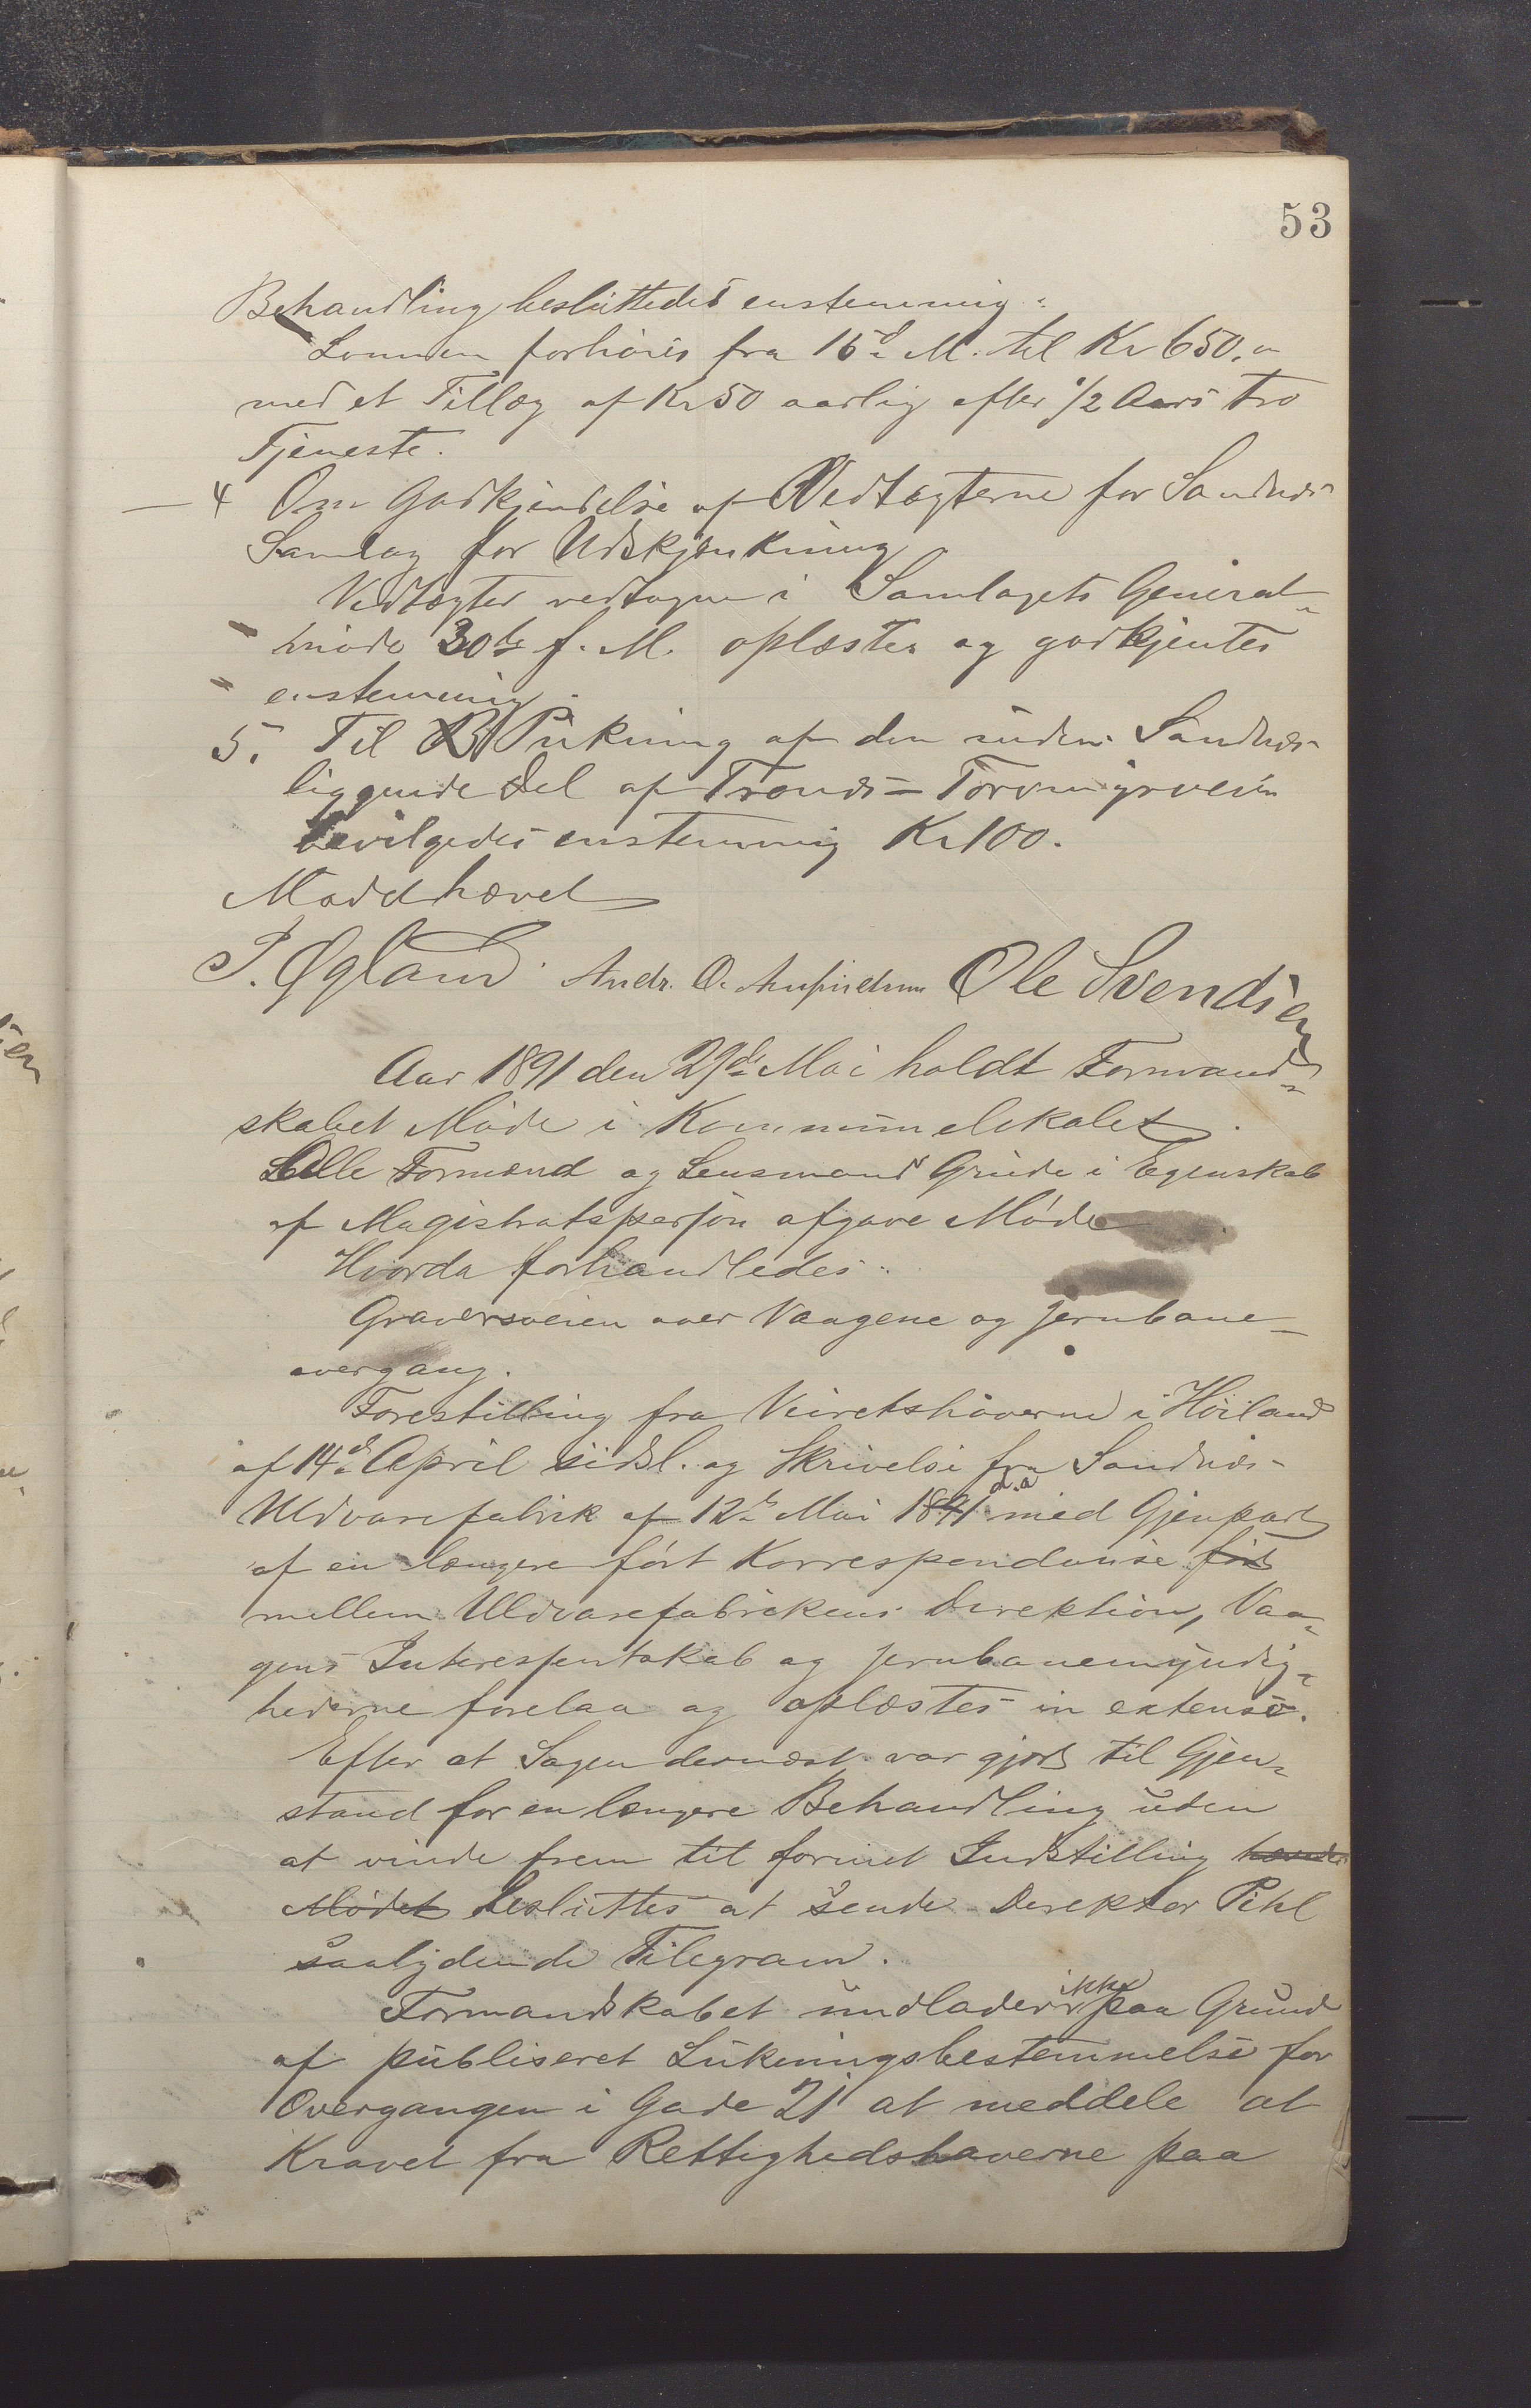 53
Behandling besluttedes enstemmig:
Lønnen forhøies fra 15d M. til Kr 650,"
med et Tillæg af Kr 50 aarlig efter 1/2 Aars tro
Tjeneste.
4 Om Godkjendelse af Vedtægterne for Sandnes
Samlag for Udskjænkning.
Vedtægter vedtagne i Samlagets General-
møde 30te f. M. oplæstes og godkjentes
enstemmig.
5. Til Pukning af den inden Sandnes
liggende Del af Tronds-Torvmyrveien
bevilgedes enstemmig Kr 100.
Mødet hævet
S. Øgland. Andr. O. Ole Svendsen
Aar 1891 den 29de Mai holdt Formand-
skabet Møde i Kommunelokalet.
Alle Formænd og Lensmand Grude i Egenskab
af Magistratsperson afgave Møde
Hvorda forhandledes:
Graversveien over Vaagene og Jernbane-
overgang.
Forestilling fra Veiretshaverne i Høiland
af 14de April sidstl. og Skrivelse fra Sandnes
Uldvarefabrik af 12te Mai 1891 d.a. med Gjenpart
af en længere ført Korrespondanse ført
mellem Uldvarefabrikens Direktion, Vaa-
gens Interessentskab og Jernbanemyndig-
hederne forelaa og oplæstes in extenso.
Efter at Sagen dernæst var gjort til Gjen-
stand for en længere Behandling uden
at vinde frem til formel Indstilling hævedes
Mødet besluttes at sende Direktør Pihl
saalydende Telegram.
Formandskabet undlader ikke paa Grund
af publiseret Lukningsbestemmelse for
Overgangen i Gade 21 at meddele at
Kravet fra Rettighedshaverne paa